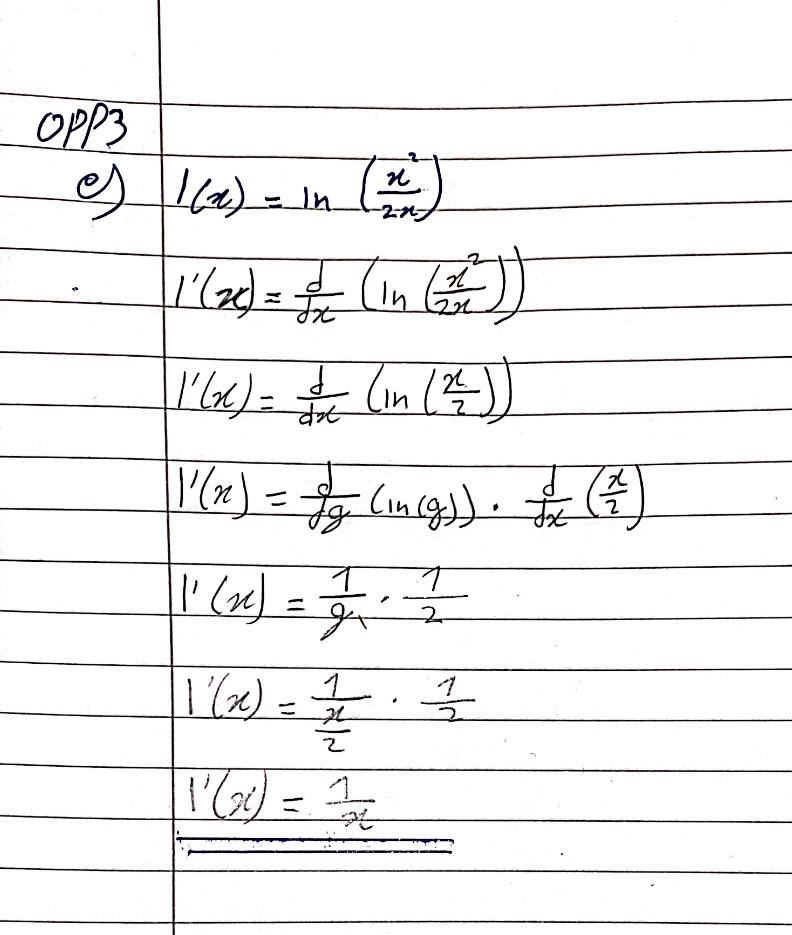 OPP3
e) l(x) = ln (x²/2x)
l'(x) = d/dx (ln (x²/2x))
l'(x) = d/dx (ln (x/2))
l'(x) = d/dg (ln(g)) · d/dx (x/2)
l'(x) = 1/g · 1/2
l'(x) = 1/(x/2) · 1/2
l'(x) = 1/x